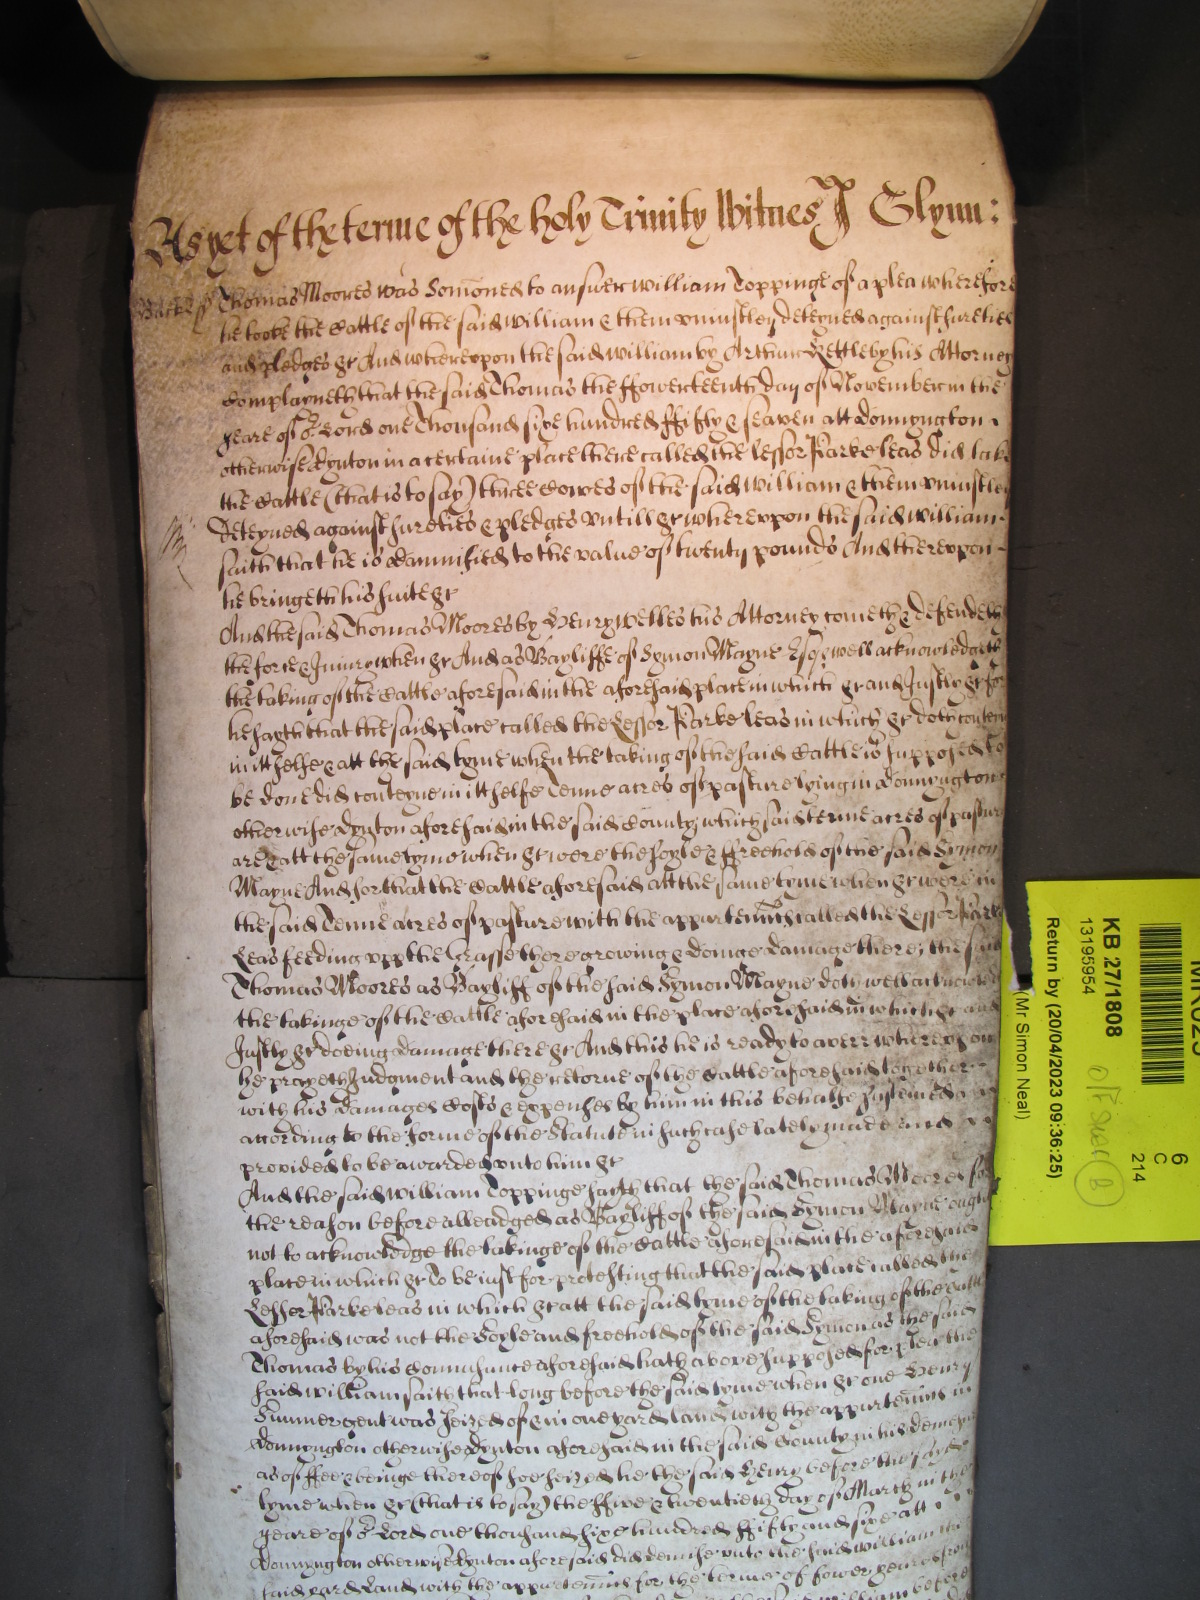 As yet of the terme of the holy Trinity Witnes J Glynn:
Bucks ss Thomas Moores was Somoned to answer William Toppinge of a plea wherefore
he tooke the Cattle of the said William & them uniustley deteyned against sureties
and pledges &c And whereupon the said William by Arthur Kettleby his Attorney
Complayneth that the said Thomas the ffowerteenth day of November in the
yeare of or Lord one Thousand sixe hundred ffifty & seaven att Donnyngton
otherwise Dynton in a certaine place there called the lessor Parke leas did take
the Cattle (that is to say) three Cowes of the said William & them uniustley
deteyned against sureties & pledges untill &c whereupon the said William
saith that he is damnified to the value of twenty pounds And thereupon
he bringeth his suite &c
And the said Thomas Moores by Henry Welles his Attorney cometh & defendeth
the force & Iniury when &c And as Bayliffe of Symon Mayne Esqr well acknowledgeth
the taking of the Cattle aforesaid in the aforesaid place in which &c and Justly &c for
he sayth that the said place called the Lessor Parke leas in which &c doth conteyne
in itt selfe & att the said tyme when the taking of the said Cattle is supposed to
be done did conteyne in itt selfe Tenne acres of pasture lying in Donnyngton
otherwise Dynton aforesaid in the said County, which said tenne acres of pasture
are & att the same tyme when &c were the soyle & ffreehold of the said Symon
Mayne And for that the Cattle aforesaid att the same tyme when &c were in
the said Tenne acres of pasture with the appurtennces called the Lessor Parke
Leas feeding upp the Grasse there growing & doinge damage there, the said
Thomas Moores as Bayliff of the said Symon Mayne doth well acknowledge
the takinge of the Cattle aforesaid in the place aforesaid in which &c and
Justly &c doeing damage there &c And this he is ready to averr whereupon
he prayeth Judgment and the retorne of the Cattle aforesaid together
with his damages Costs & expenses by him in this behalfe susteined
according to the forme of the Statute in such case lately made and
provided to be awarded unto him &c
And the said William Toppinge sayth that the said Thomas Moores for
the reason before alleadged as Bayliff of the said Symon Mayne ought
not to acknowledge the takinge of the Cattle aforesaid in the aforesaid
place in which &c to be iust for protesting that the said place called the
Lessor Parke leas in which &c att the said tyme of the taking of the Cattle
aforesaid was not the Soyle and freehold of the said Symon as the said
Thomas by his Connusance aforesaid hath above supposed for plea the
said William saith that long before the said tyme when &c one Henry
gent was seized of & in one yard land with the appurtennces in
Donnyngton otherwise Dynton aforesaid in the said County in his demeyne
as of ffee & beinge thereof soe seized he the said Henry before the said
tyme when &c (that is to say) the ffive & twentieth day of March in the
yeare of or Lord one thousand sixe hundred ffifty and sixe att
Donnyngton otherwise Dynton aforesaid did demise unto the said William the
said yard Land with the appurtennces for the terme of fower yeares from
6
C
214
KB 27/1808
13195954
Return by (20/04/2023 09:36:25)
(Mr Simon Neal)